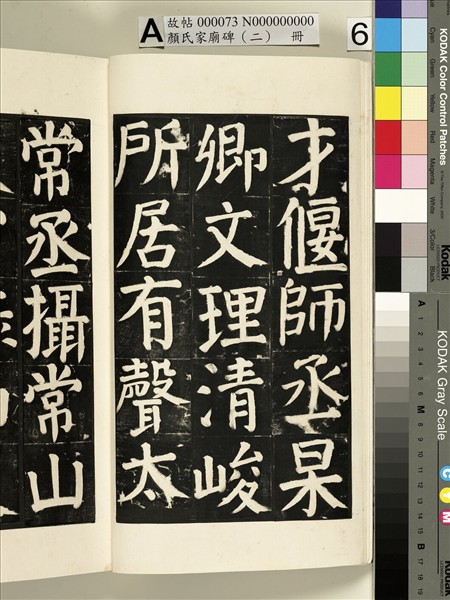 故帖 000073 N000000000
顏氏家廟碑(二) 冊
A
6
才偃師丞杲
卿文理清峻
所居有聲太
常丞攝常山
KODAK Color Control Patches
Blue
Cyan
Green
Yellow
Red
Magenta
White
3/Color
Black
Kodak
KODAK Gray Scale
A 1 2 3 4 5 6 M 8 9 10 11 12 13 14 15 B 17 18 19
C Y M
Kodak